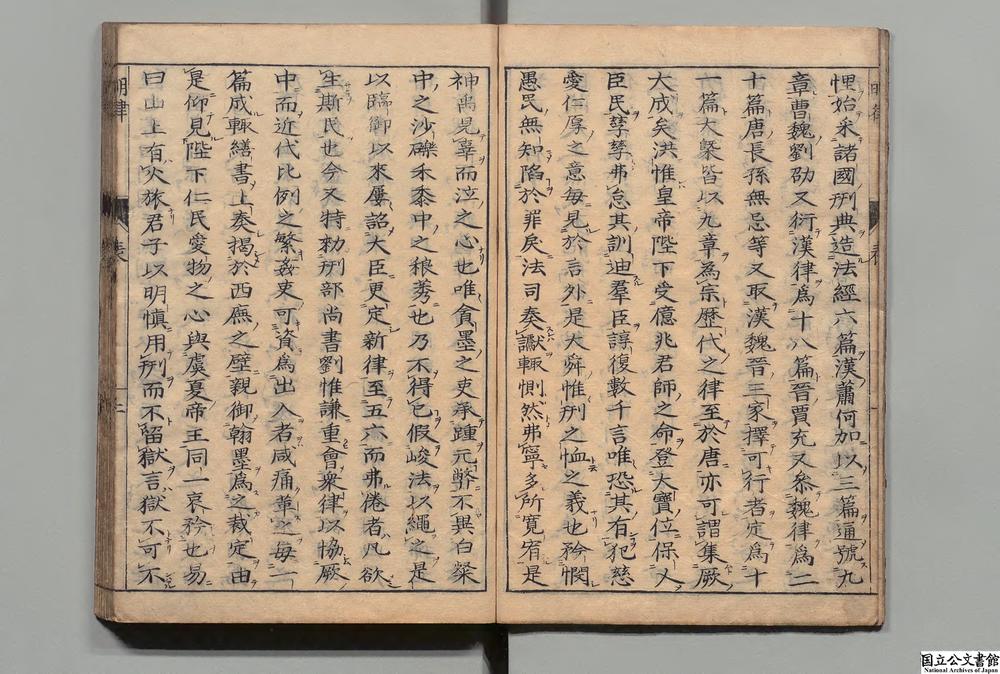 悝始采諸國刑典造法經六篇漢蕭何加以三篇通號九
章曹魏劉劭又衍漢律爲十八篇晉賈充又叅魏律爲二
十篇唐長孫無忌等又取漢魏晉三家擇可行者定爲十
一篇大槩皆以九章為宗歷代之律至於唐亦可謂集厥
大成矣洪惟皇帝陛下受億兆君師之命登大寶位保乂
臣民孳孳弗怠其訓迪羣臣諄復數千言唯恐其有犯慈
愛仁厚之意每見於言外是大舜惟刑之恤之義也矜憫
愚民無知陷於罪戾法司奏讞輙惻然弗寧多所寬宥是
神禹見辜而泣之心也唯貪墨之吏承踵元弊不異白粲
中之沙礫禾黍中之稂莠也乃不得已假峻法以繩之是
以臨御以來屢詔大臣更定新律至五六而弗倦者凡欲
生斯民也今又特勅刑部尚書劉惟謙重會衆律以恊厥
中而近代比例之繁姦吏可資爲出入者咸痛革之每一
篇成輙繕書上奏揭於西廡之壁親御翰墨爲之裁定由
是仰見陛下仁民愛物之心與虞夏帝王同一哀矜也易
曰山上有火旅君子以明慎用刑而不留獄言獄不可不
明律
表
三
国立公文書館
National Archives of Japan